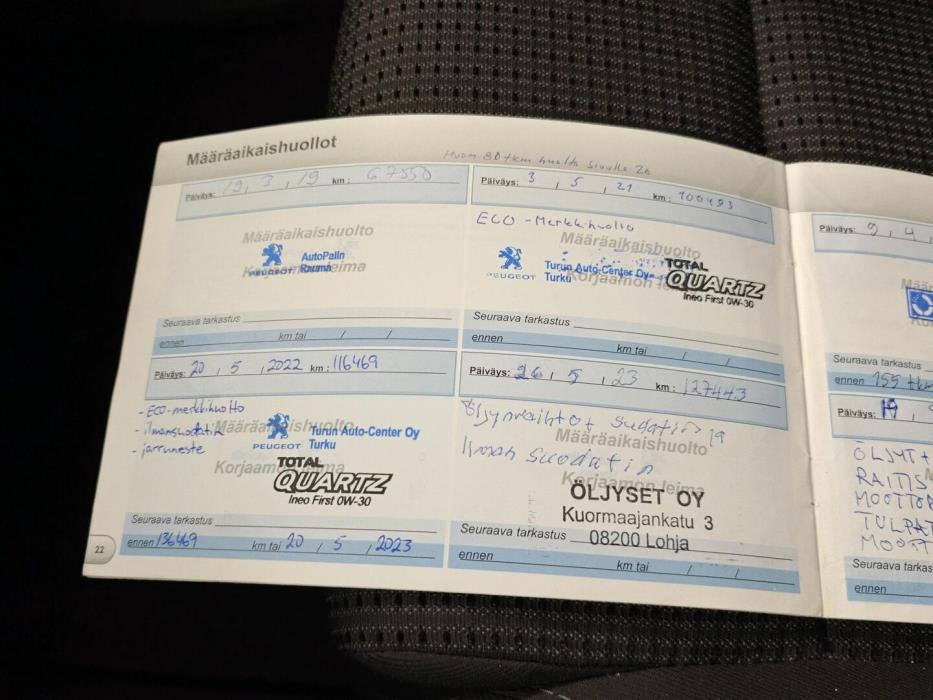 Määräaikaishuollot
Huom 80 tkm huolto sivulla 20
Päiväys: 19, 3, 19 km: 67550
Määräaikaishuolto
Korjaamon leima
PEUGEOT
AutoPalin
Rauma
Seuraava tarkastus
ennen km tai / /
Päiväys: 3, 5, 21 km: 100493
ECO -Merkkihuolto
Määräaikaishuolto
Korjaamon leima
PEUGEOT
Turun Auto-Center Oy
Turku
TOTAL
QUARTZ
Ineo First 0W-30
Seuraava tarkastus
ennen km tai / /
Päiväys: 20, 5, 2022 km: 116469
- ECO-merkkihuolto
- ilmansuodatin
- jarruneste
Määräaikaishuolto
Korjaamon leima
PEUGEOT
Turun Auto-Center Oy
Turku
TOTAL
QUARTZ
Ineo First 0W-30
Seuraava tarkastus
ennen 136469 km tai 20, 5, 2023
22
Päiväys: 26, 5, 23 km: 127443
Öljynvaihto + suodatin ja
Ilman suodatin
Määräaikaishuolto
Korjaamon leima
ÖLJYSET OY
Kuormaajankatu 3
08200 Lohja
Seuraava tarkastus
ennen km tai / /
Päiväys: 9, 4,
Seuraava tarkastus
ennen 155 tkm
Päiväys: 19,
ÖLJYT +
RAITIS
MOOTTOR
TULPAT
MOOTT
Seuraava tarkas
ennen